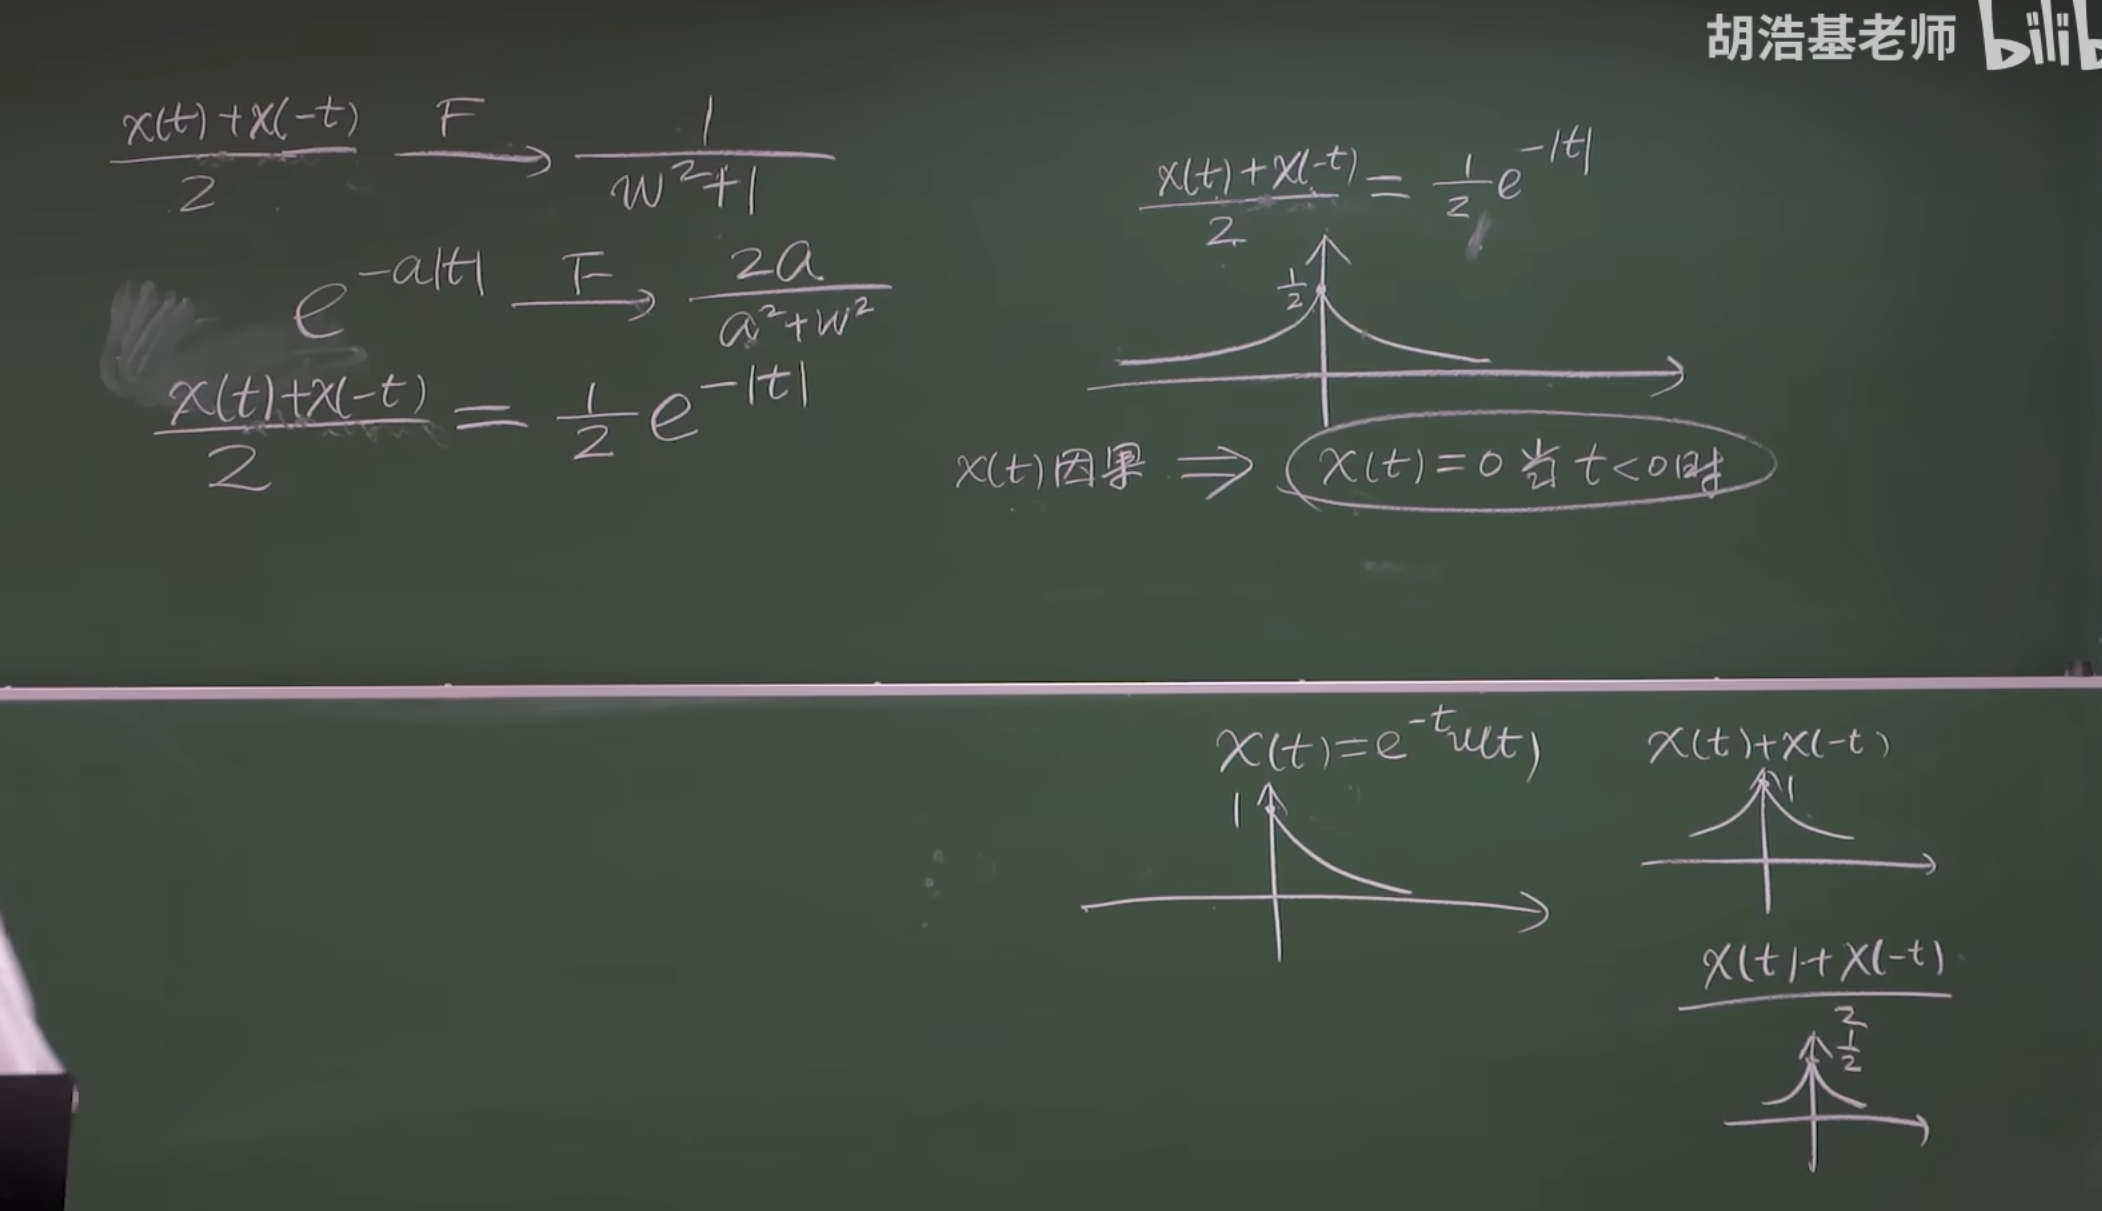 胡浩基老师 bilib
x(t)+x(-t)/2 F→ 1/(w²+1)
e^{-a|t|} F→ 2a/(a²+w²)
x(t)+x(-t)/2 = 1/2 e^{-|t|}
x(t)+x(-t)/2 = 1/2 e^{-|t|}
1/2
x(t)因果 ⇒ x(t)=0当t<0时
x(t)=e^{-t}u(t)
1
x(t)+x(-t)
1
x(t)+x(-t)/2
1/2